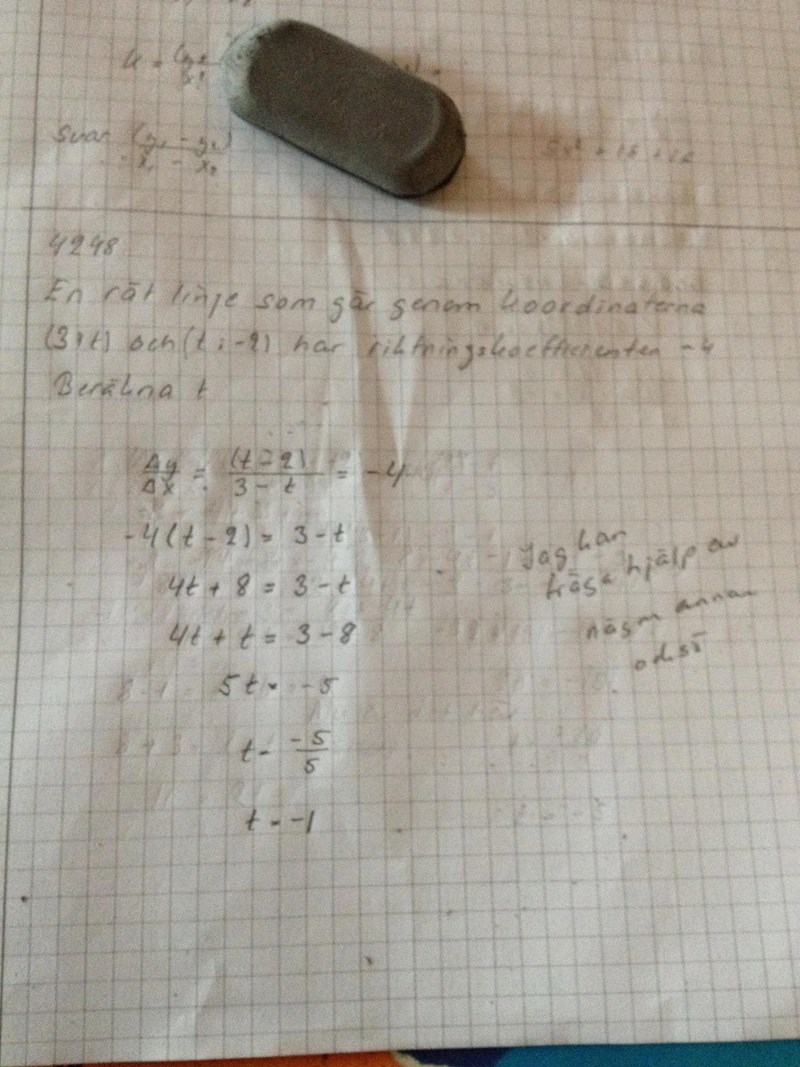 Svar (y₁ - y₂)
x₁ - x₂
4248
En rät linje som går genom koordinaterna
(3, t) och (t, -2) har riktningskoefficienten -4
Beräkna t
Δy/Δx = (t - 2)/(3 - t) = -4
-4(t - 2) = 3 - t
4t + 8 = 3 - t
4t + t = 3 - 8
5t = -5
t = -5/5
t = -1
Jag kan
fråga hjälp av
någon annan
också